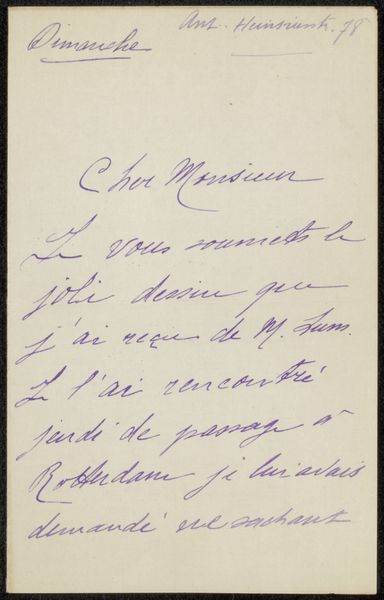 Ant. Heinsiusstr. 78
Dimanche
Cher Monsieur
Je vous soumets le
joli dessin que
j'ai reçu de M.
Je l'ai rencontré
jeudi de passage à
Rotterdam je lui avais
demandé en sachant